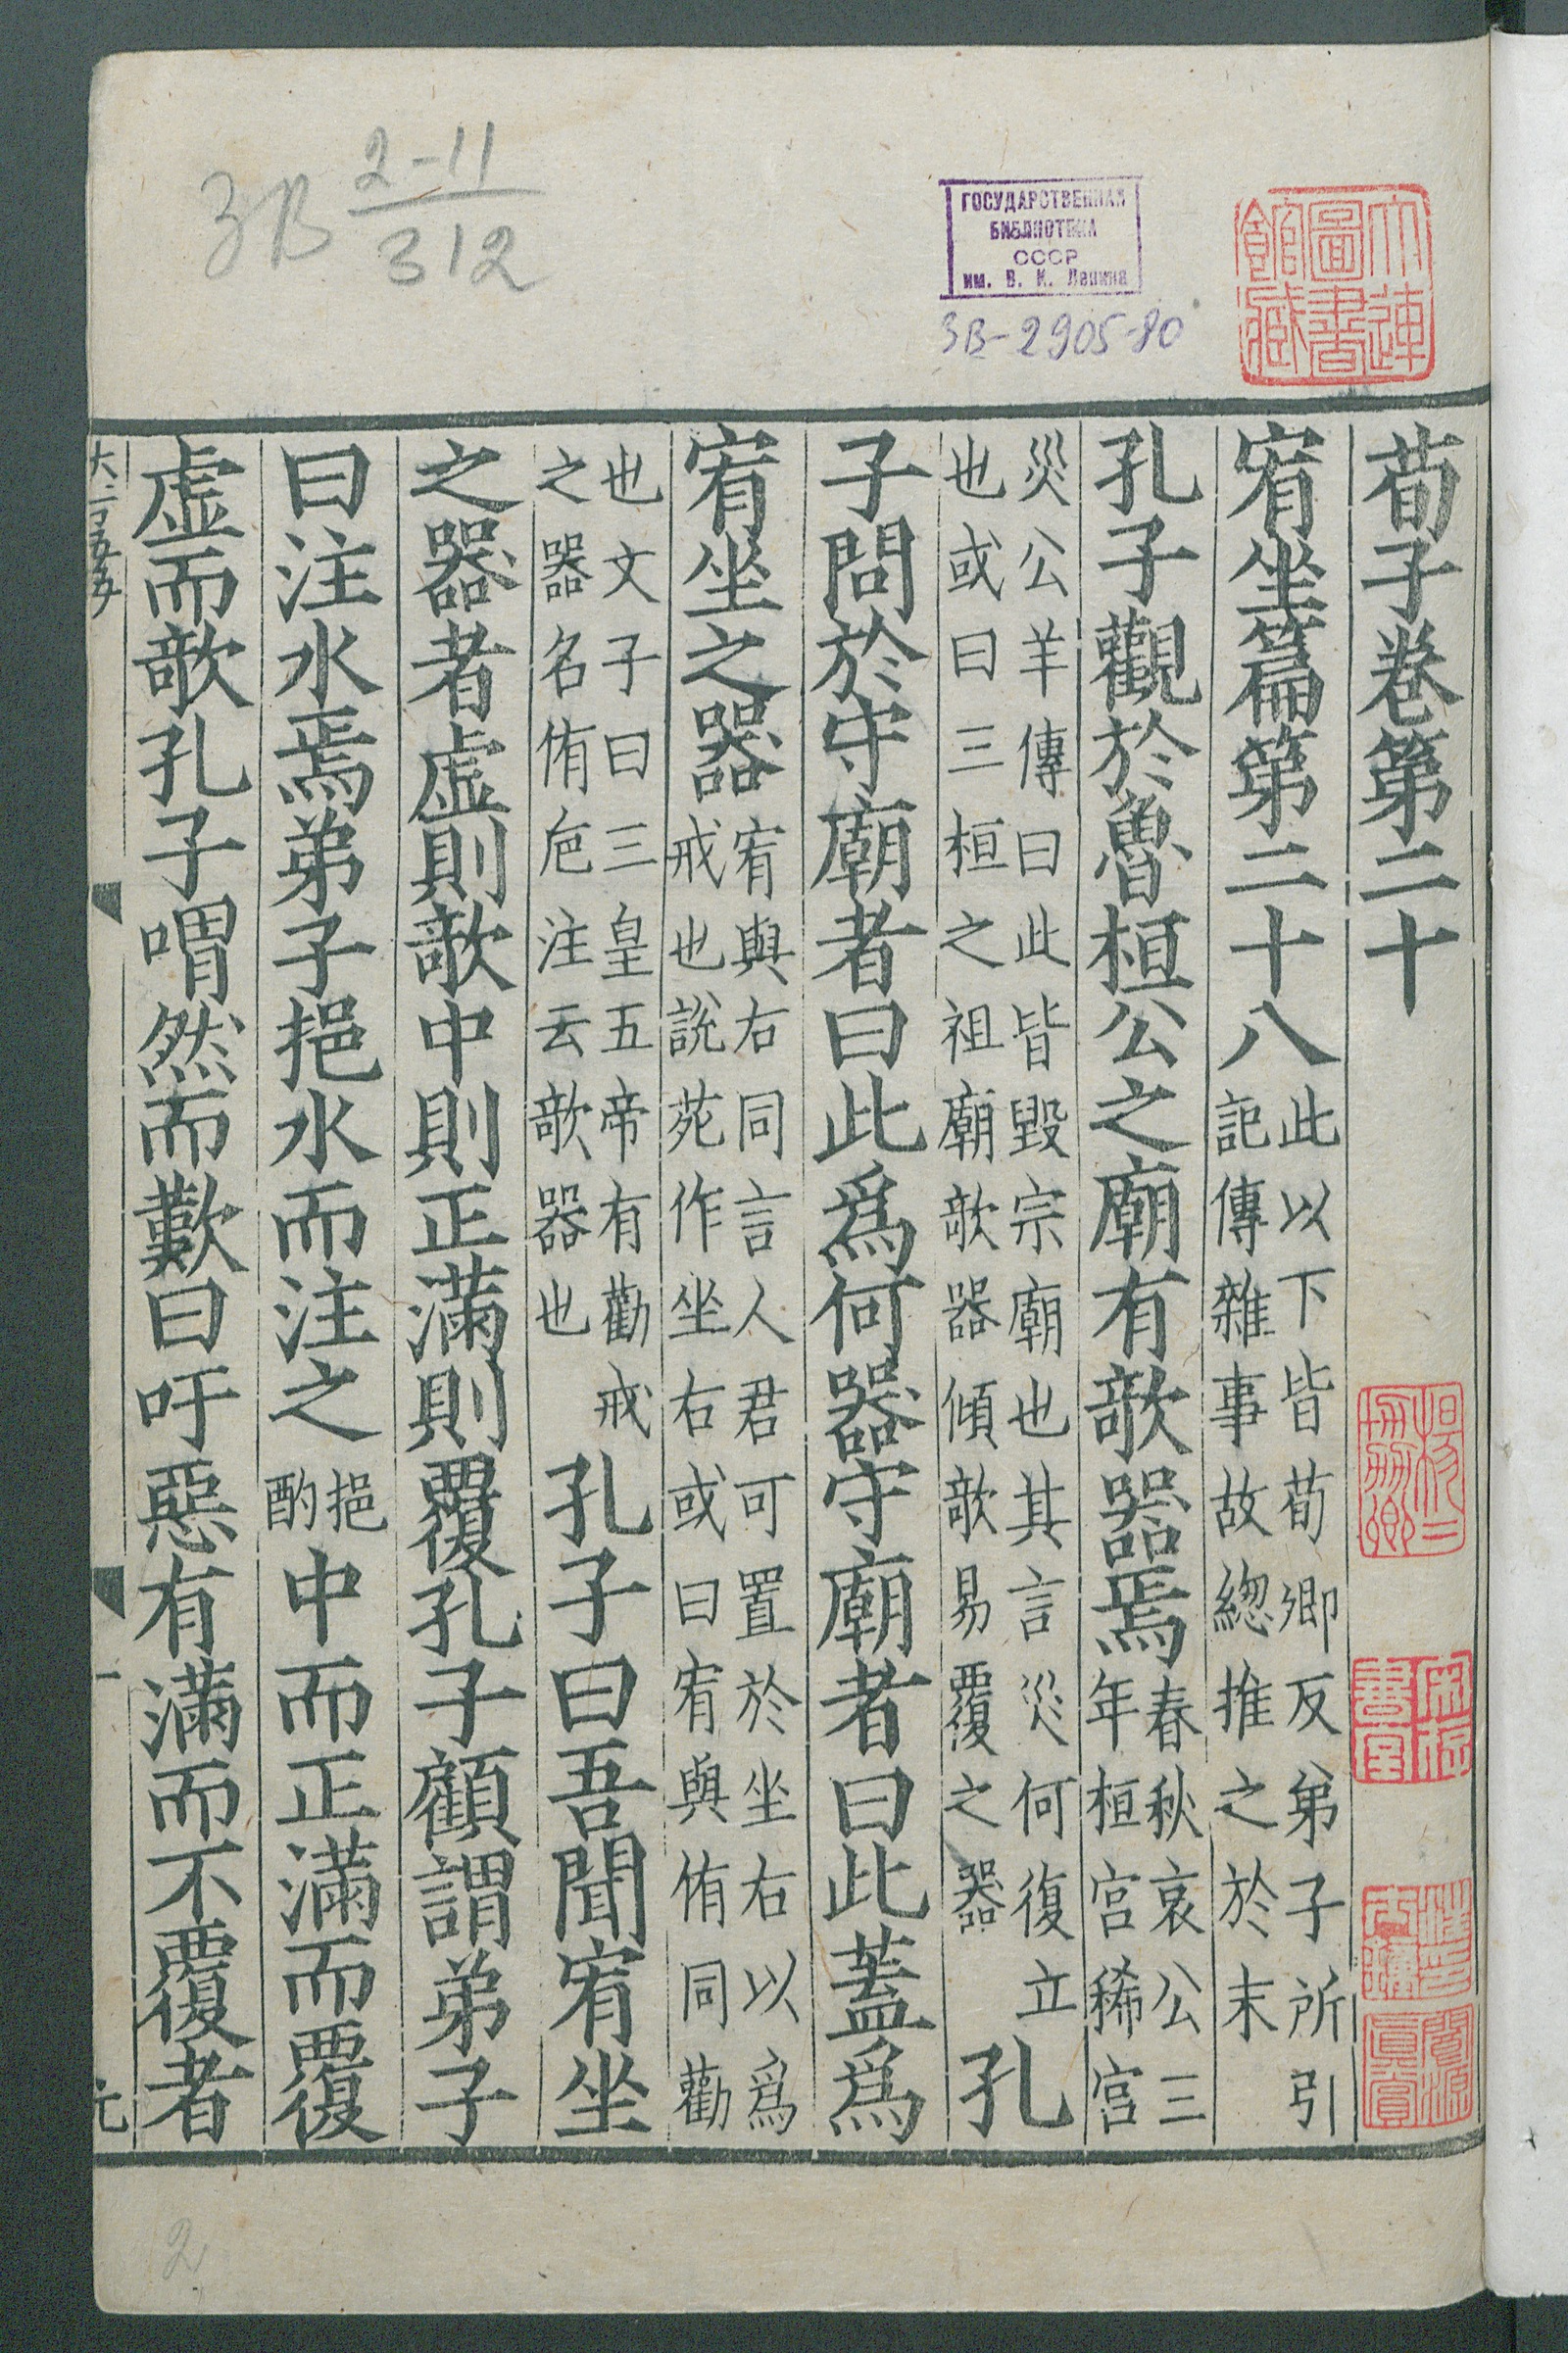 ЗВ 2-11/312
ГОСУДАРСТВЕННАЯ
БИБЛИОТЕКА
СССР
им. В. И. Ленина
ЗВ-2905-80
大連圖書館藏
荀子卷第二十
宥坐篇第二十八此以下皆荀卿及弟子所引記傳雜事故緫推之於末
孔子觀於魯桓公之廟有欹器焉春秋哀公三年桓宮稀宮
災公羊傳曰此皆毀宗廟也其言災何復立也或曰三桓之祖廟欹器傾欹易覆之器孔
子問於守廟者曰此爲何器守廟者曰此蓋爲
宥坐之器宥與右同言人君可置於坐右以爲戒也說苑作坐右或曰宥與侑同勸
也文子曰三皇五帝有勸戒之器名侑巵注云欹器也孔子曰吾聞宥坐
之器者虛則欹中則正滿則覆孔子顧謂弟子
曰注水焉弟子挹水而注之挹酌中而正滿而覆
虛而欹孔子喟然而歎曰吁惡有滿而不覆者
一
元
2